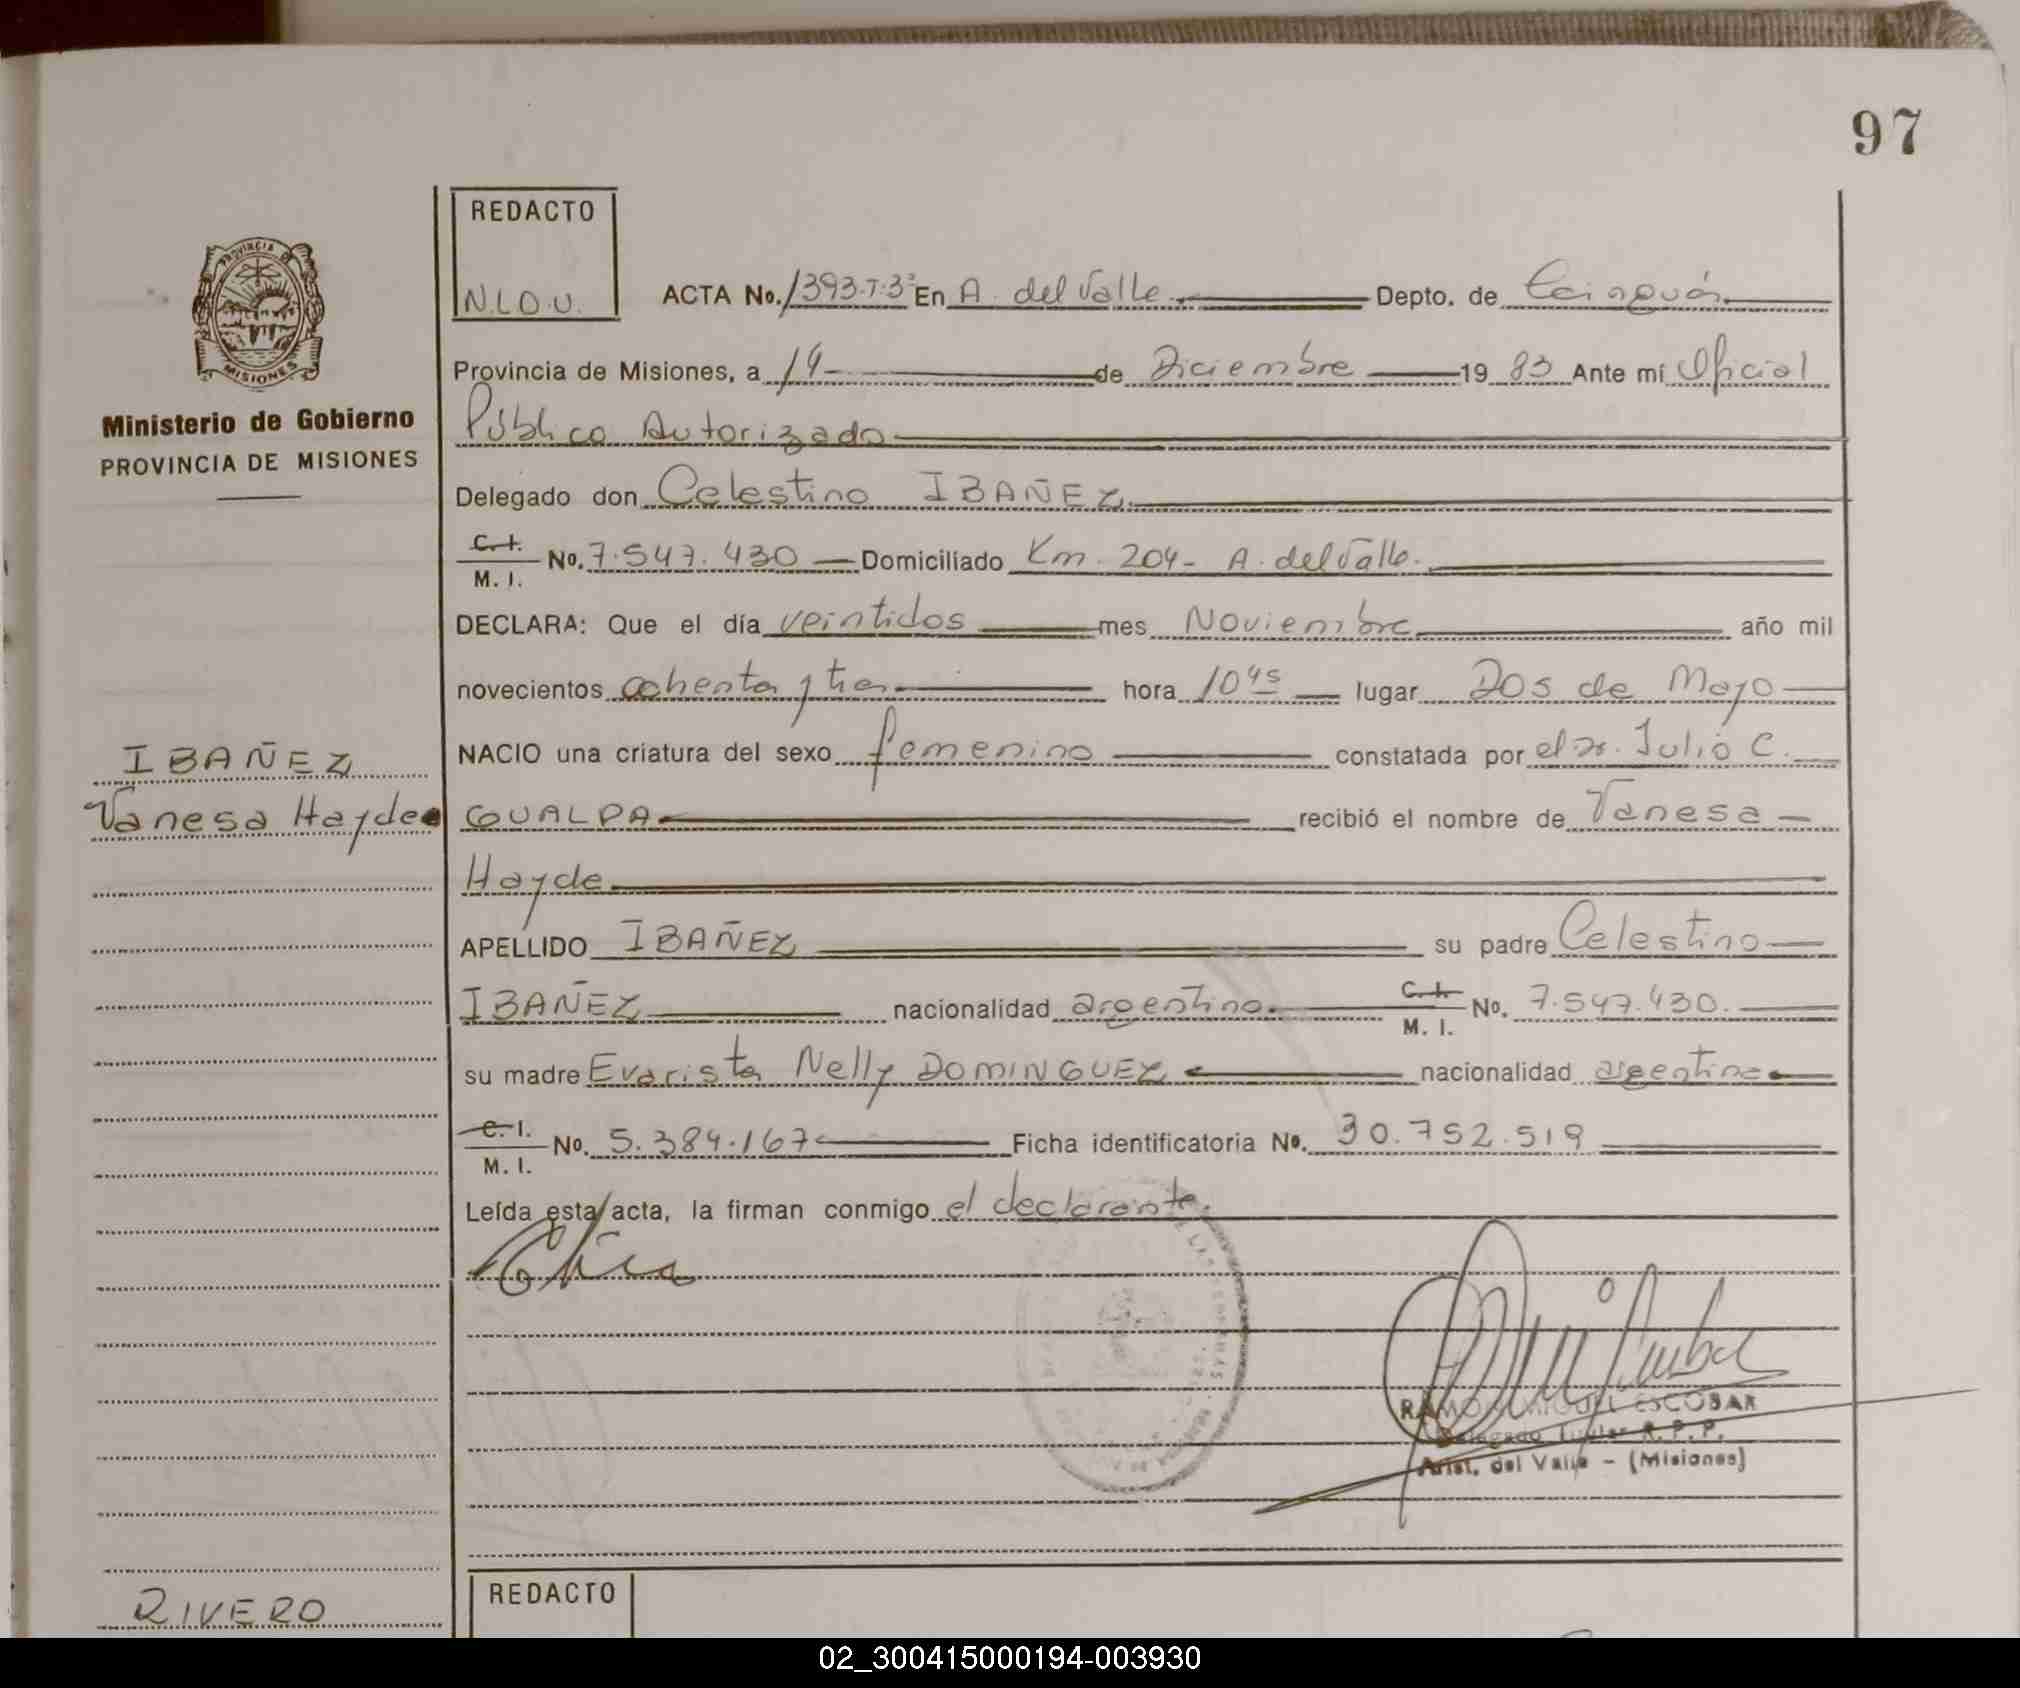 97
REDACTO
N.L.O.U.
ACTA No. 1393-T-3º En A. del Valle Depto. de Cainguás
PROVINCIA DE
MISIONES
Provincia de Misiones, a 19 de Diciembre 19 83 Ante mí Oficial
Ministerio de Gobierno
PROVINCIA DE MISIONES
Público Autorizado
Delegado don Celestino IBAÑEZ
C. I.
M. I. No. 7.547.430 Domiciliado Km. 204 - A. del Valle.
DECLARA: Que el día veintidos mes Noviembre año mil
novecientos ochenta y tres hora 10 45 lugar Dos de Mayo
NACIO una criatura del sexo femenino constatada por el Dr. Julio C.
IBAÑEZ
Vanesa Hayde
GUALPA recibió el nombre de Vanesa
Hayde
APELLIDO IBAÑEZ su padre Celestino
IBAÑEZ nacionalidad argentino C. I.
M. I. No. 7.547.430.
su madre Evarista Nelly DOMINGUEZ nacionalidad argentina
C. I.
M. I. No. 5.384.167 Ficha identificatoria No. 30.752.519
Leída esta acta, la firman conmigo el declarante.
RAMON MIGUEL ESCOBAR
Delegado Titular R. P. P.
Arist. del Valle - (Misiones)
REDACTO
RIVERO
02_300415000194-003930